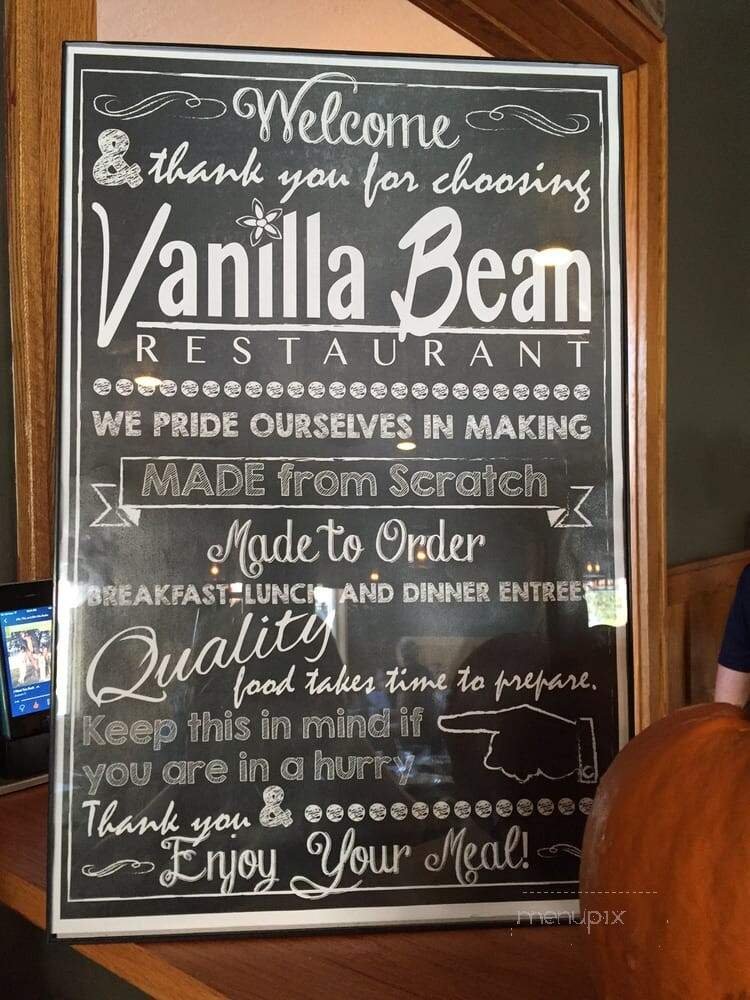 Welcome
& thank you for choosing
Vanilla Bean
RESTAURANT
WE PRIDE OURSELVES IN MAKING
MADE from Scratch
Made to Order
BREAKFAST, LUNCH, AND DINNER ENTREES
Quality
food takes time to prepare.
Keep this in mind if
you are in a hurry
Thank you &
Enjoy Your Meal!
menupix